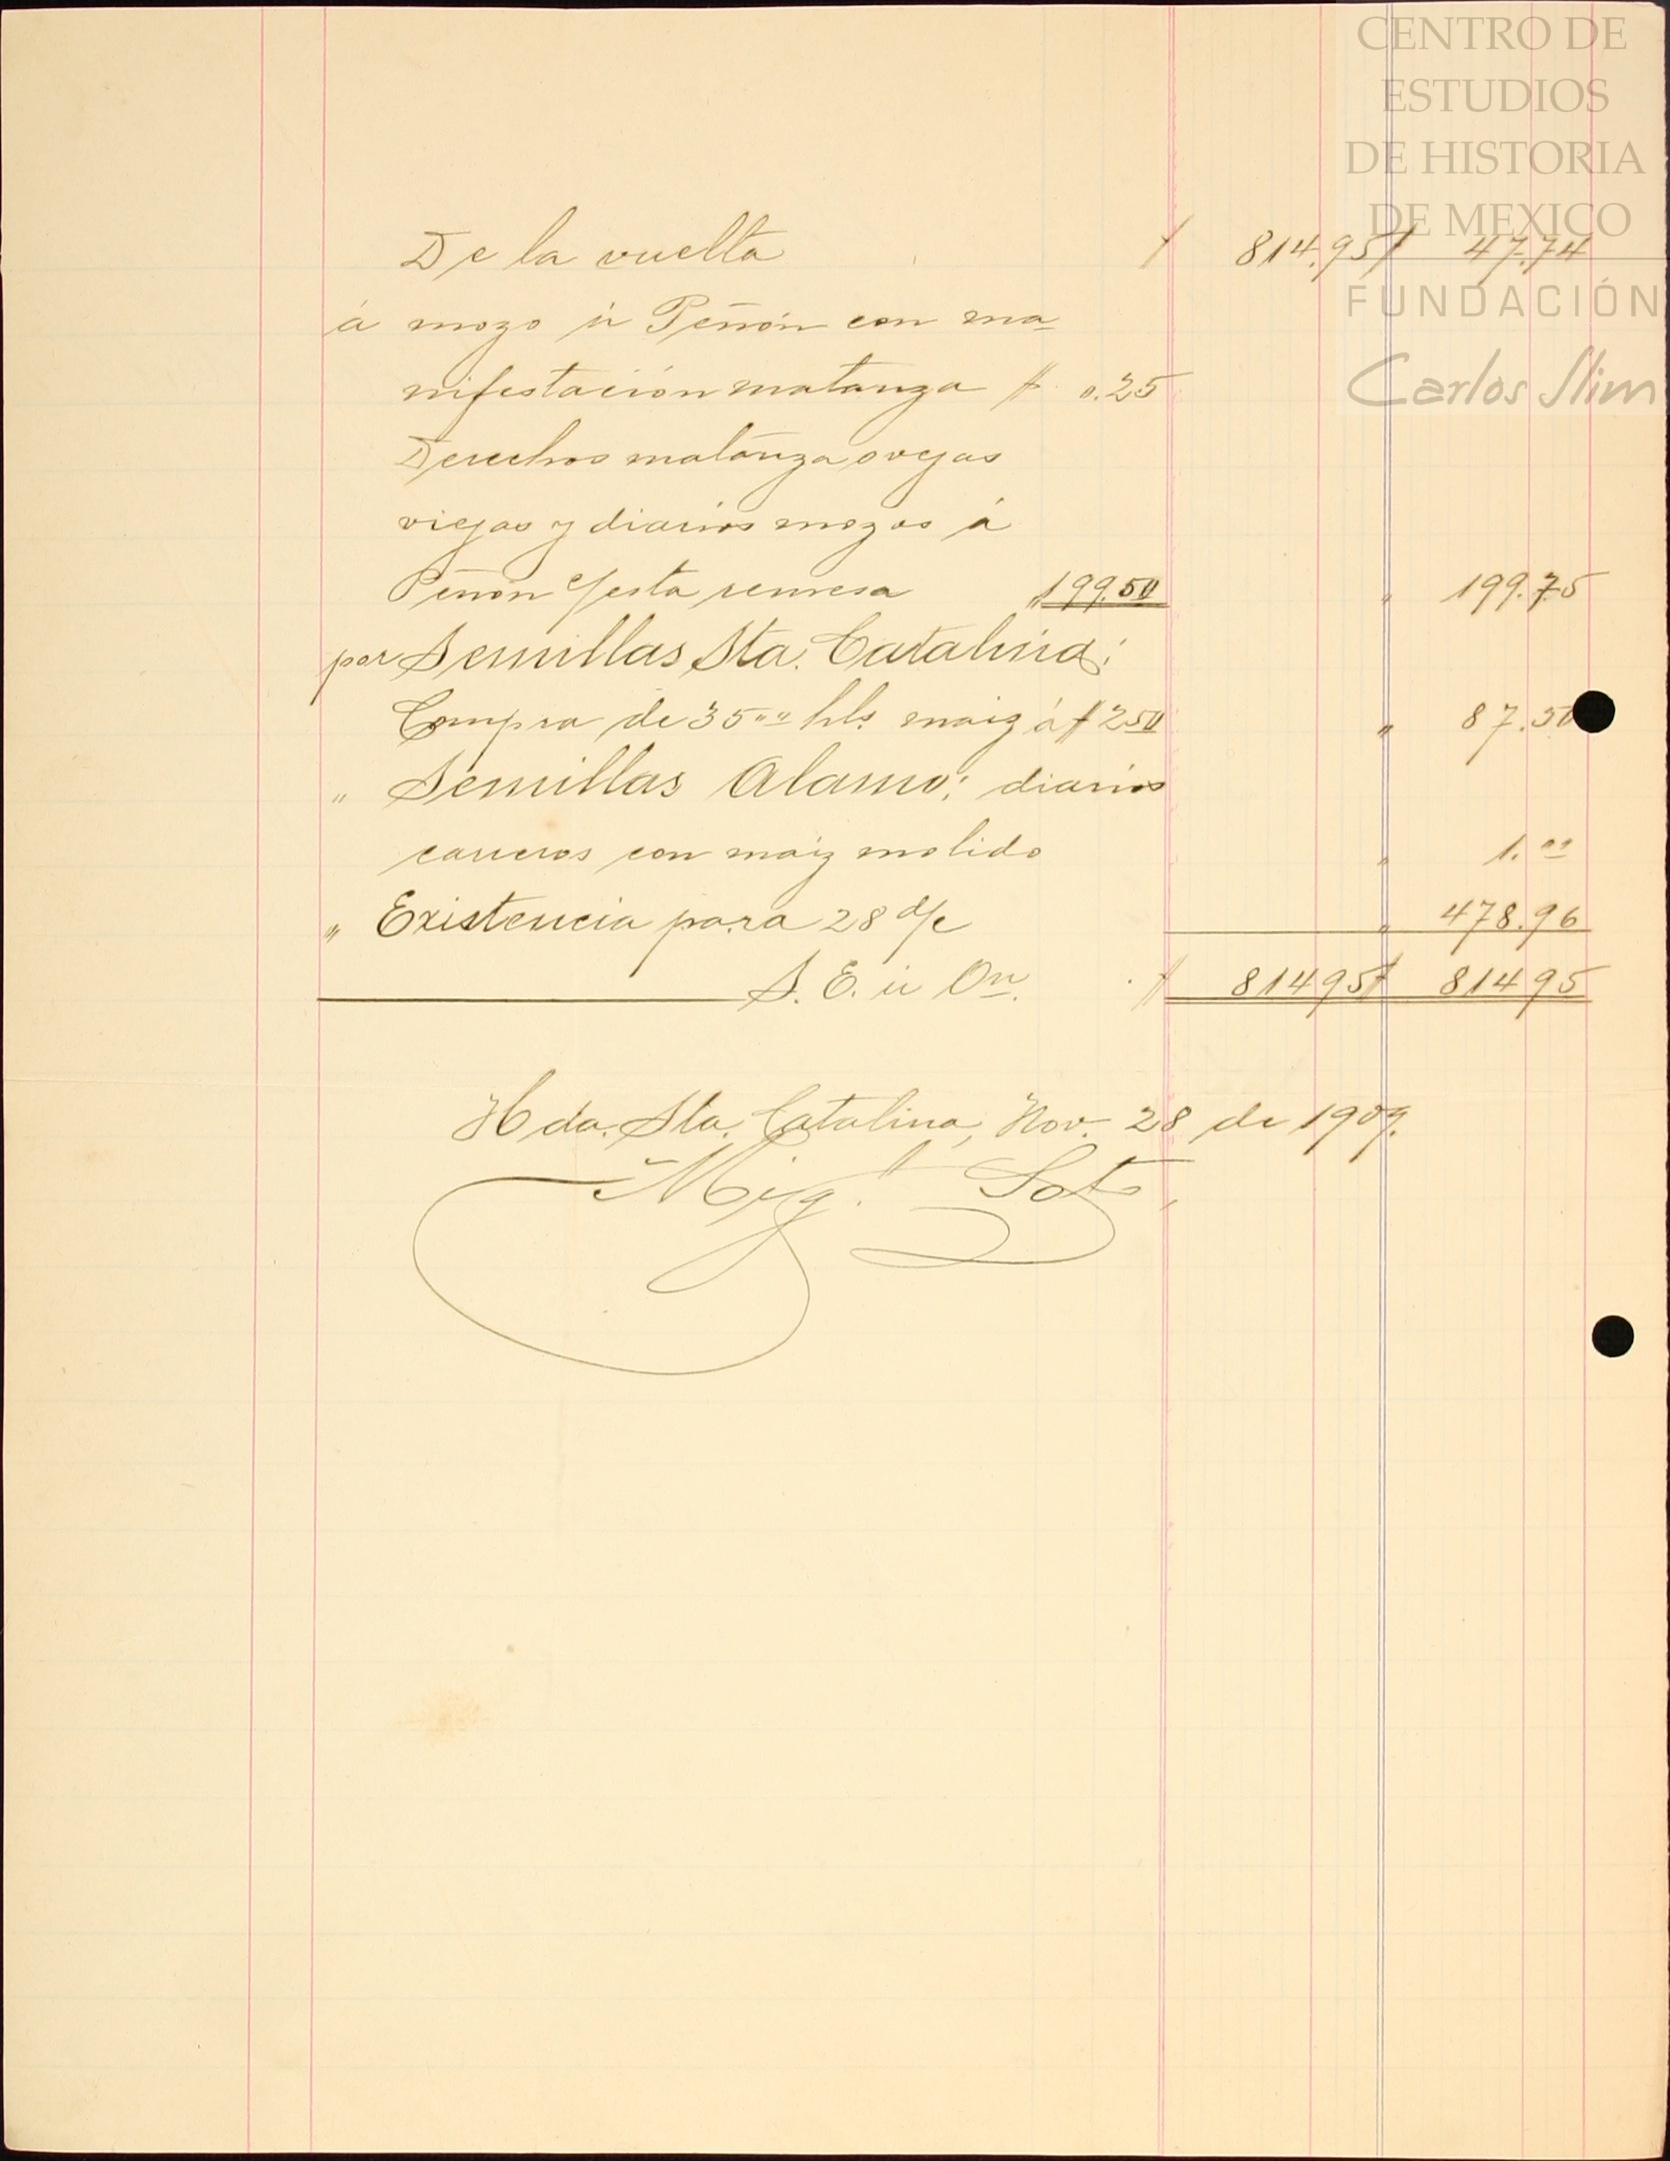 CENTRO DE
ESTUDIOS
DE HISTORIA
DE MEXICO
FUNDACIÓN
Carlos Slim
De la vuelta $ 814.95 $ 47.74
á mozo ir Peñón con ma-
nifestación matanza $ 0.25
Derechos matanza ovejas
viejas y diarios mozos á
Peñón c/esta remesa " 199.50 " 199.75
por Semillas Sta. Catalina:
Compra de 35"00 hls. maiz á $ 2.50 " 87.50
" Semillas Alamo: diarios
carreros con maiz molido " 1.00
" Existencia para 28 d/c " 478.96
S. E. ú On. $ 814 95 $ 814 95
Hda. Sta. Catalina, Nov. 28 de 1909.
Migl. Soto,